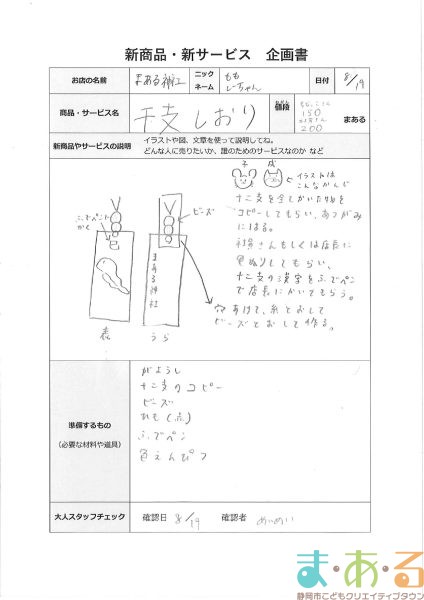 新商品・新サービス 企画書
お店の名前 まある神社 ニックネーム ももじーちゃん 日付 8/19
商品・サービス名 干支しおり 値段 ねだん 150 200 まある
新商品やサービスの説明 イラストや図、文章を使って説明してね。
どんな人に売りたいか、誰のためのサービスなのか など
子 戌
イラストは
こんなかんじ
ふでペンで
かく
ビーズ
巳
まある神社
表
うら
十二支を全てかいたものを
コピーしてもらい、あつがみ
にはる。
社員さんもしくは店長に
色ぬりしてもらい、
十二支の漢字をふでペン
で店長にかいてもらう。
穴あけて、糸とおして
ビーズとおして作る。
準備するもの
(必要な材料や道具)
がようし
十二支のコピー
ビーズ
ひも(赤)
ふでペン
色えんぴつ
大人スタッフチェック 確認日 8/19 確認者 めいめい
ま・あ・る
静岡市こどもクリエイティブタウン